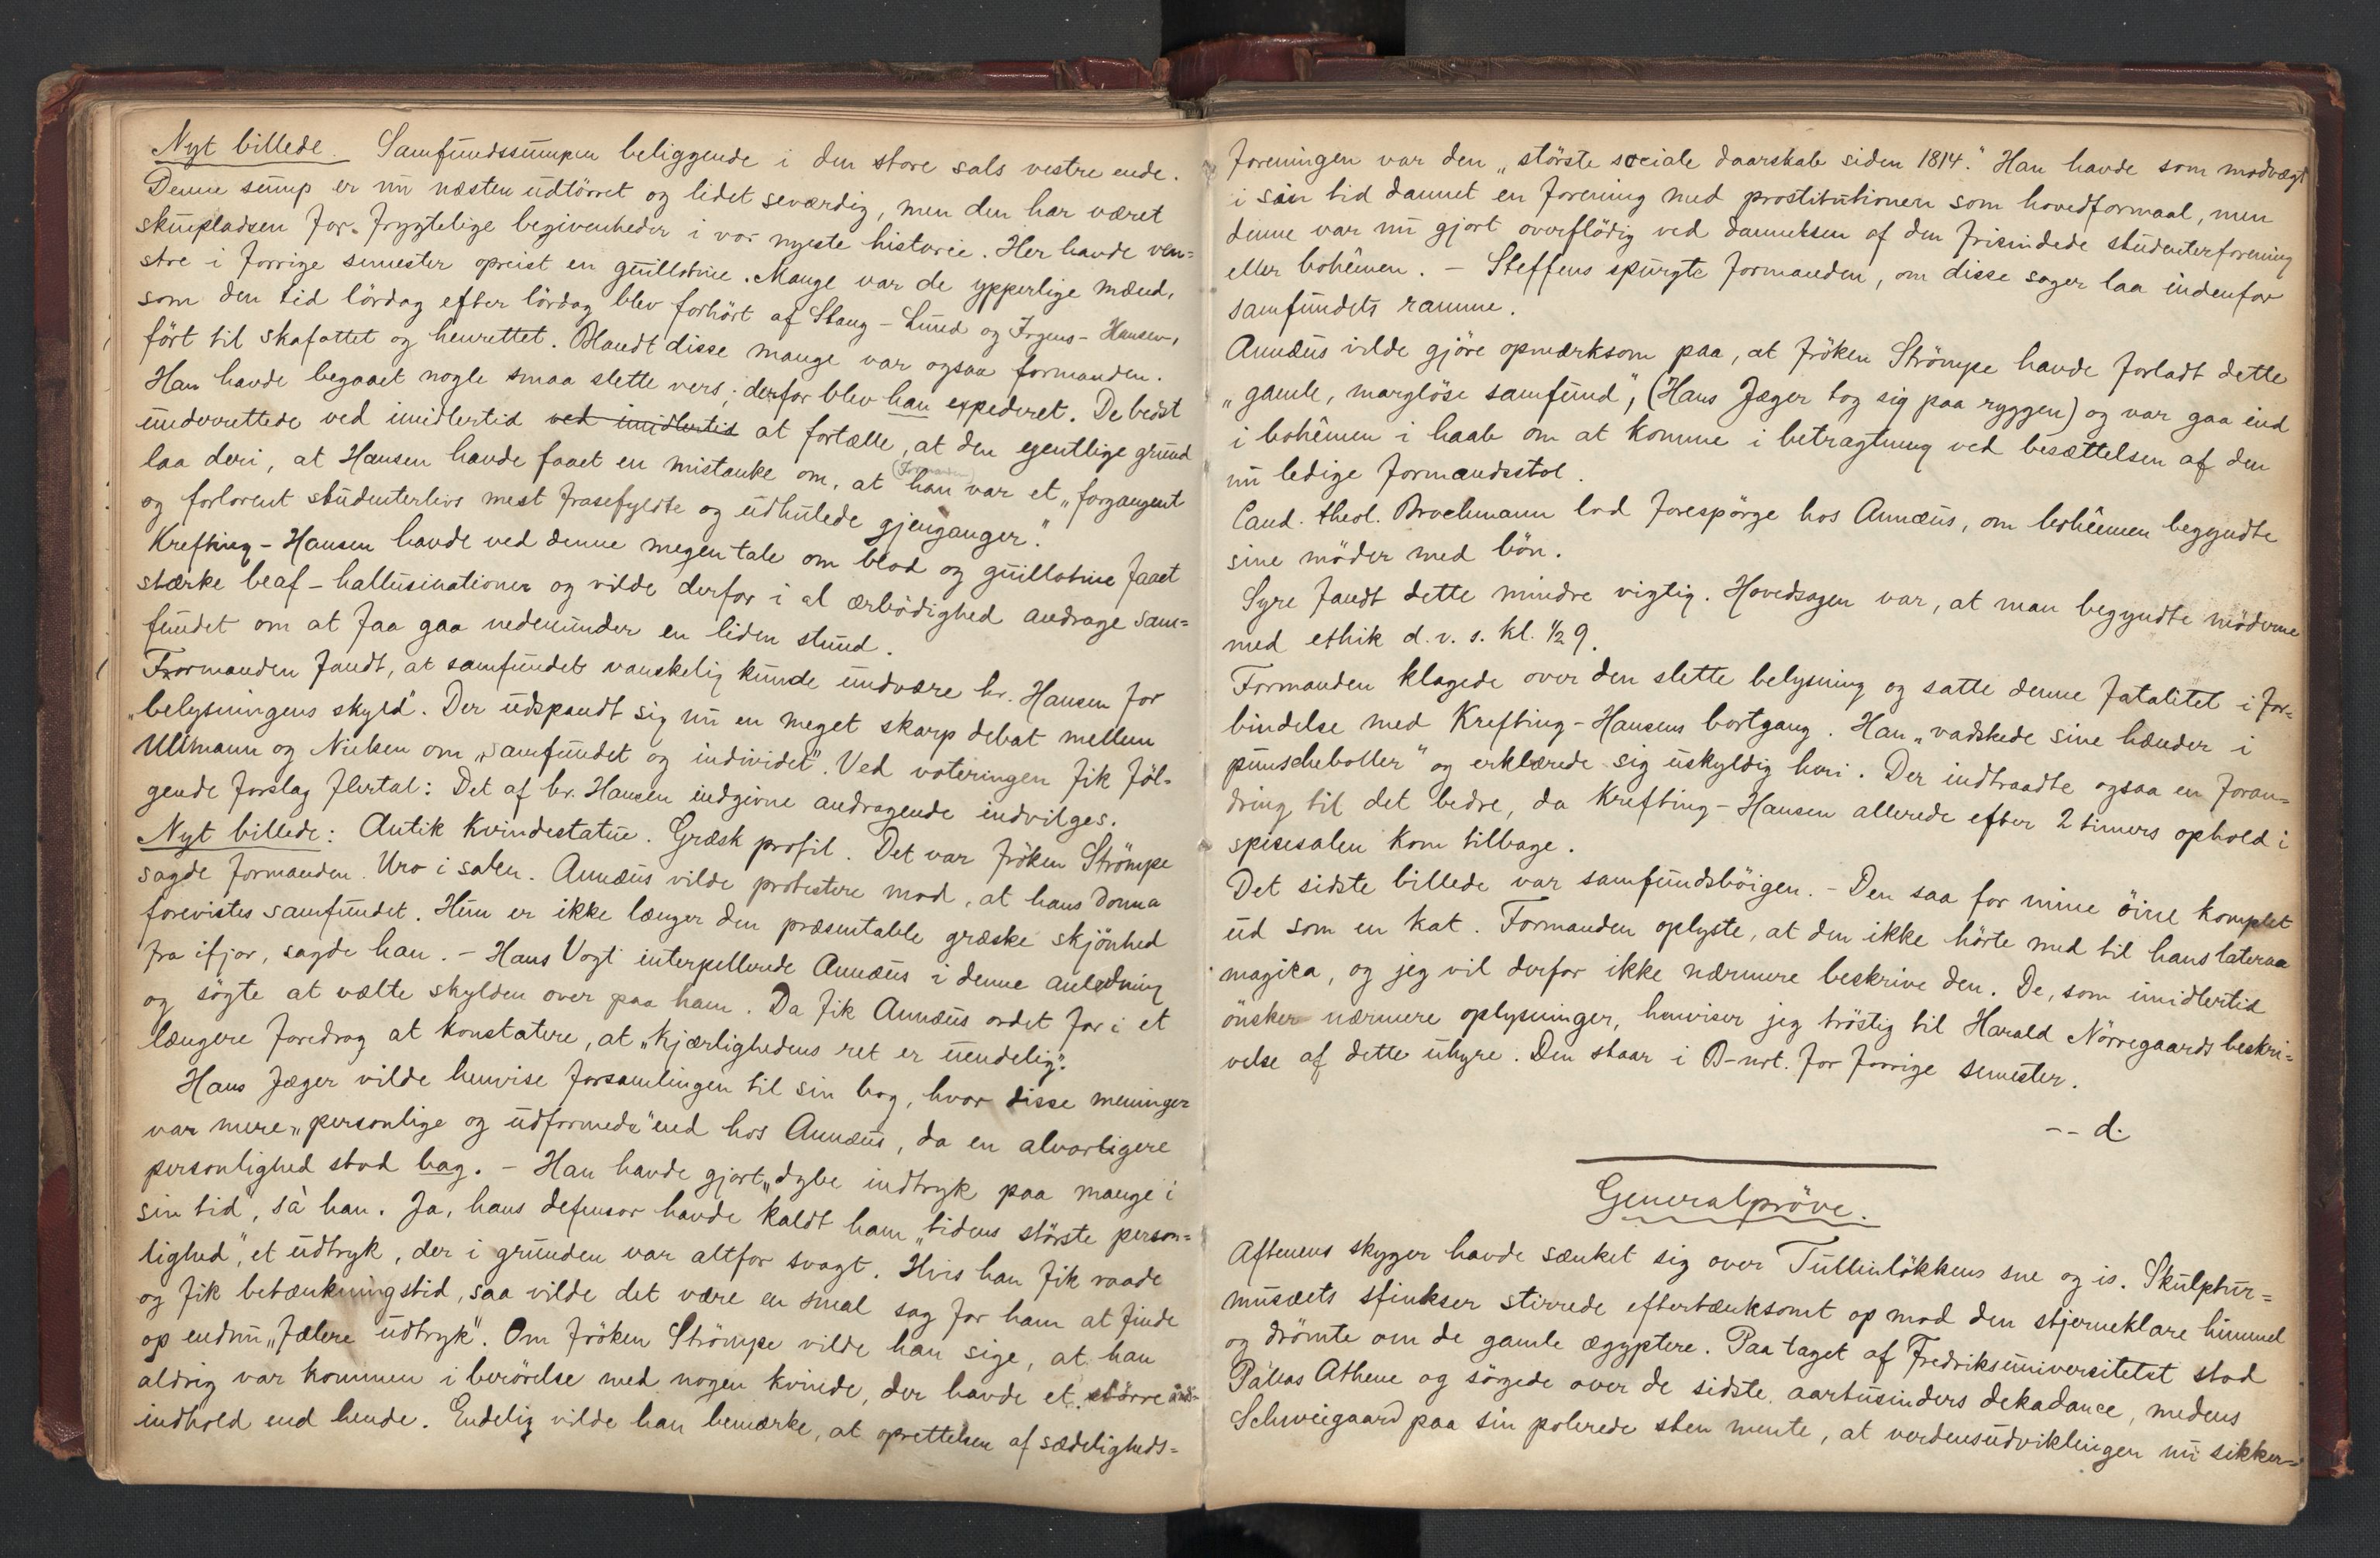 Nyt billede. Samfundssumpen beliggende i den store sals vestre ende.
Denne sump er nu næsten udtörret og lidet seværdig, men den har været
skuepladsen for frygtelige begivenheder i vor nyeste historie. Her havde ven=
stre i forrige semester opreist en guillotine. Mange var de ypperlige mænd,
som den tid lördag efter lördag blev forhört af Stang-Lund og Irgens-Hansen,
fört til skafottet og henrettet. Blandt disse mange var ogsaa formanden.
Han havde begaaet nogle smaa slette vers; derfor blev han expederet. De bedst
underrettede ved imidlertid ved imidlertid at fortælle, at den egentlige grund
laa deri, at Hansen havde faaet en mistanke om, at han (formanden) var et „forgangent
og forlorent studenterlivs mest frasefyldte og udhulede gjenganger."
Krefting-Hansen havde ved denne megen tale om blod og guillotine faaet
stærke beaf-hallusinationer og vilde derfor i al ærbödighed andrage sam=
fundet om at faa gaa nedenunder en liden stund.
Formanden fandt, at samfundet vanskelig kunde undvære hr. Hansen for
„belysningens skyld". Der udspandt sig nu en meget skarp debat mellem
Ullmann og Nielsen om „samfundet og individet". Ved voteringen fik föl-
gende forslag flertal: Det af hr. Hansen indgivne andragende indvilges.
Nyt billede: Antik kvindestatue. Græsk profil. Det var fröken Strömpe
sagde formanden. Uro i salen. Annæus vilde protestere mod, at hans donna
forevistes samfundet. Hun er ikke længer den præsentable græske skjönhed
fra ifjor, sagde han. - Hans Vogt interpellerede Annæus i denne anledning
og sögte at vælte skylden over paa ham. Da fik Annæus ordet for i et
længere foredrag at konstatere, at „kjærlighedens ret er uendelig".
Hans Jæger vilde henvise forsamlingen til sin bog, hvor disse meninger
var mere „personlige og udformede" end hos Annæus, da en alvorligere
personlighed stod bag. - Han havde gjort „dybe indtryk paa mange i
sin tid", sa han. Ja, hans defensor havde kaldt ham „tidens störste person=
lighed", et udtryk, der i grunden var altfor svagt. Hvis han fik raade
og fik betænkningstid, saa vilde det være en smal sag for ham at finde
op endnu „fælere udtryk". Om fröken Strömpe vilde han sige, at han
aldrig var kommen i berörelse med nogen kvinde, der havde et större ånds-
indhold end hende. Endelig vilde han bemærke, at oprettelsen af sædeligheds=
foreningen var den „störste sociale daarskab siden 1814." Han havde som modvægt
i sin tid dannet en forening med prostitutionen som hovedformaal, men
denne var nu gjort overflödig ved dannelsen af den frisindede studenterforening
eller bohêmen. - Steffens spurgte formanden, om disse sager laa indenfor
samfundets ramme.
Annæus vilde gjöre opmærksom paa, at fröken Strömpe havde forladt dette
„gamle, marglöse samfund", (Hans Jæger tog sig paa ryggen) og var gaa ind
i bohêmen i haab om at komme i betragtning ved besættelsen af den
nu ledige formandsstol.
Cand. theol. Brochmann lod forespörge hos Annæus, om bohêmen begyndte
sine möder med bön.
Syre fandt dette mindre vigtig. Hovedsagen var, at man begyndte möderne
med ethik d. v. s. kl. ½ 9.
Formanden klagede over den slette belysning og satte denne fatalitet i for=
bindelse med Krefting-Hansens bortgang. Han „vadskede sine hænder i
punscheboller" og erklærede sig uskyldig heri. Der indtraadte ogsaa en foran=
dring til det bedre, da Krefting-Hansen allerede efter 2 timers ophold i
spisesalen kom tilbage.
Det sidste billede var samfundsböigen. - Den saa for mine öine komplet
ud som en kat. Formanden oplyste, at den ikke hörte med til hans laterna
magica, og jeg vil derfor ikke nærmere beskrive den. De, som imidlertid
önsker nærmere oplysninger, henviser jeg tröstig til Harald Nörregaards beskri=
velse af dette uhyre. Den staar i B-nrt. for forrige semester.
-- d.
Generalpröve.
Aftenens skygger havde sænket sig over Tullinlökkens sne og is. Skulptur=
musæets sfinkser stirrede eftertænksomt op mod den stjerneklare himmel
og drömte om de gamle ægyptere. Paa taget af Fredriksuniversitetet stod
Pallas Athene og sörgede over de sidste aartusinders dekadance, medens
Schweigaard paa sin polerede sten mente, at verdensudviklingen nu sikker=